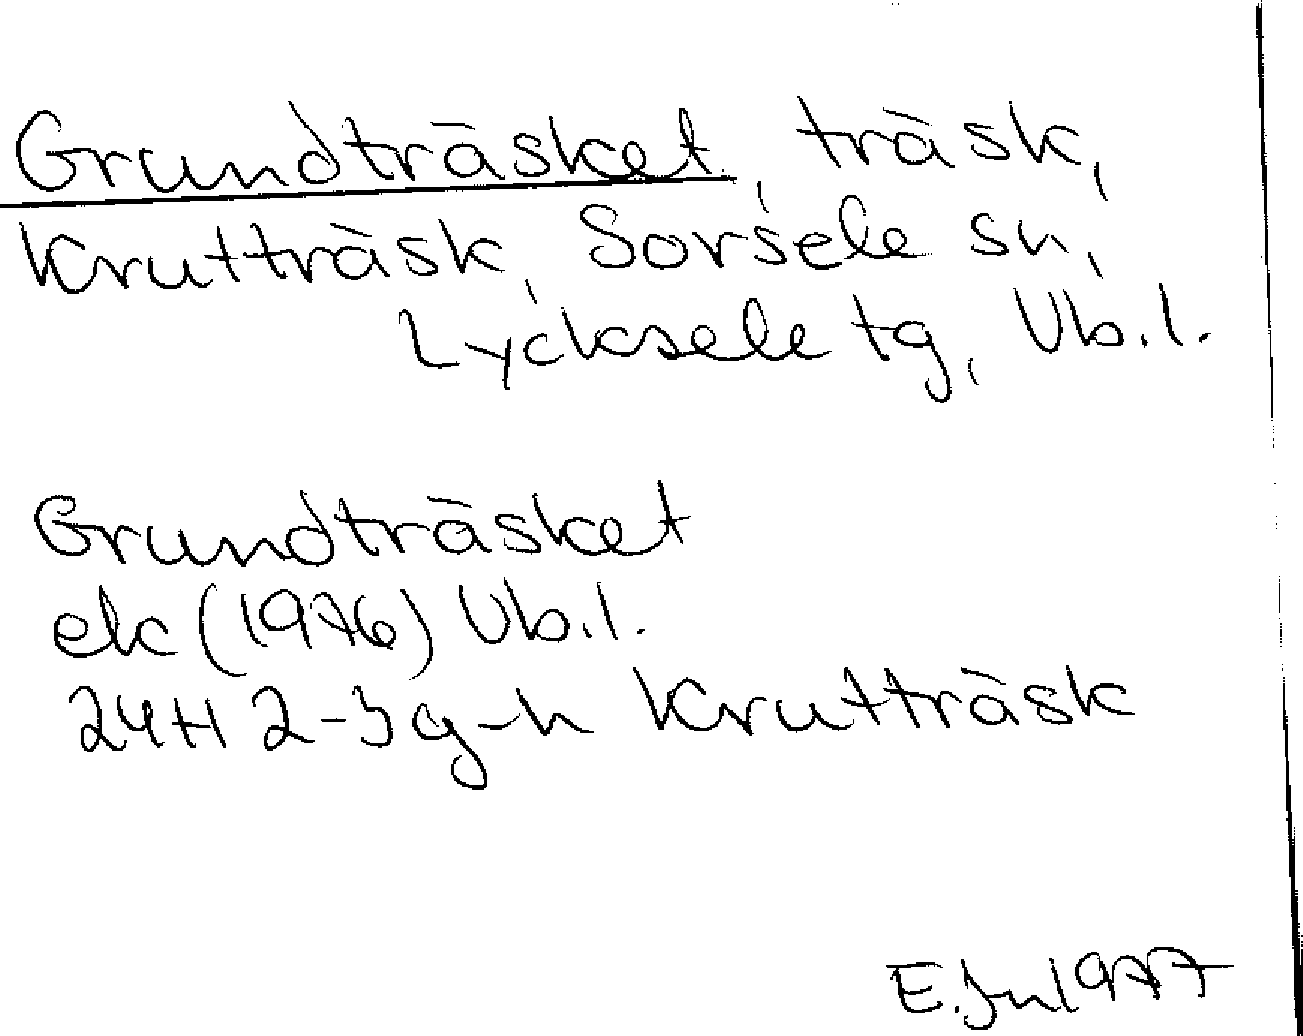 Grundträsket, träsk,
Krutträsk, Sorsele sn,
Lycksele tg, Vb.l.
Grundträsket
ek (1976) Vb.l.
24H 2-3g-h Krutträsk
1977